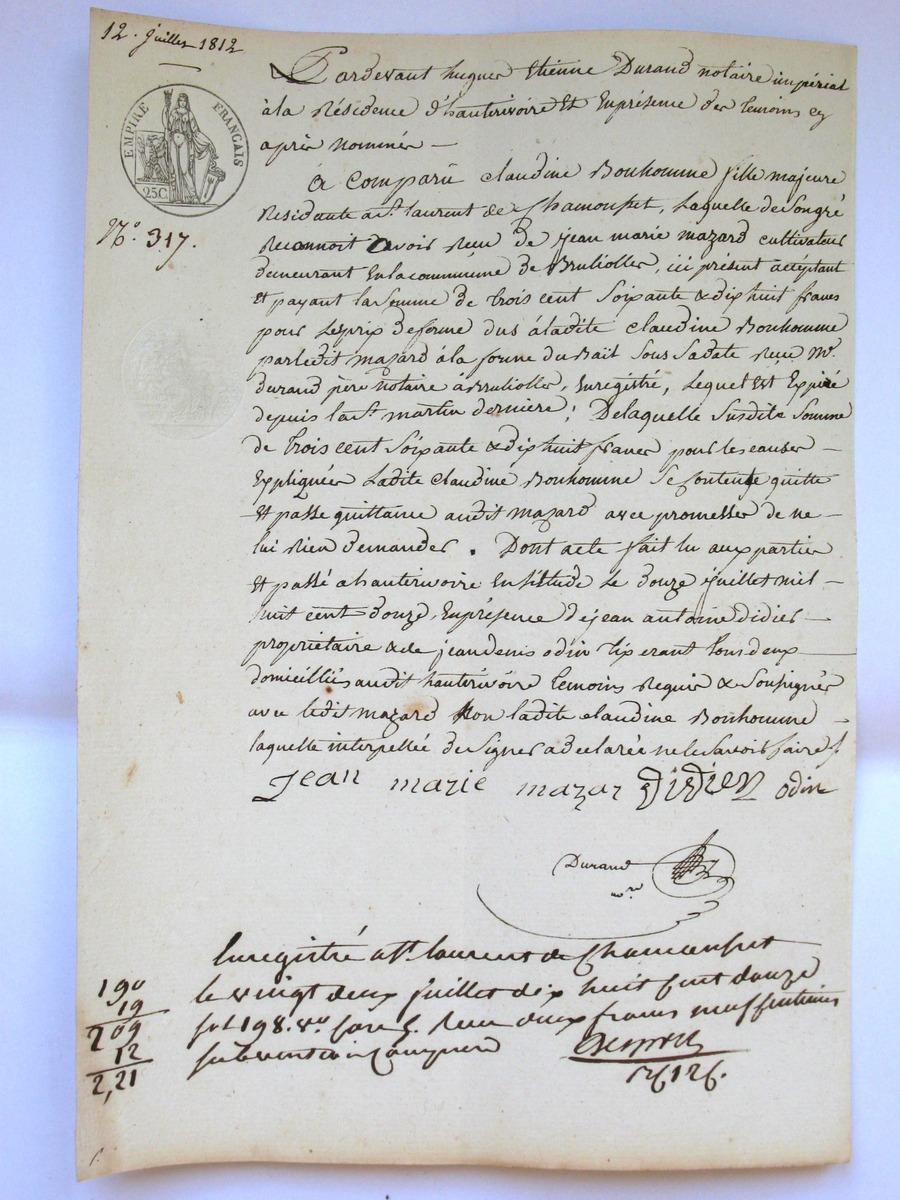 12. juillet 1812
EMPIRE FRANÇAIS
25C.
N.º 317.
Pardevant hugues Etienne Durand notaire impérial
à la Résidence d'hauterivoire Et En présence des temoins cy
après nommés —
à Comparü Claudine Bonhomme fille majeure
Residante a St. laurent de Chamousset, laquelle de Son gré
Reconnoit avoir Reçu de jean marie mazard cultivateur
demeurant En la commüne de Brulioller, ici présent acceptant
Et payant la Somme de trois cent Soixante & dix huit francs
pour Le prix de ferme dus à ladite Claudine Bonhomme
par ledit mazard à la forme du Bail Sous Sa date Reçu Me.
durand père notaire à Brulioller, Enregistré, Lequel Est Expiré
depuis la St. martin dernière; De laquelle Susdite Somme
de trois cent Soixante & dix huit francs pour les causes —
Expliquées Ladite Claudine Bonhomme Se Contente quitte
Et passe quittance audit mazard avec promesses de ne —
lui Rien demander. Dont acte fait lu aux parties
Et passé a hauterivoire En l'Etude Le douze juillet mil —
huit cent douze, En présence de jean antoine didier —
propriétaire & de jean denis odin tixerant tous deux
domicilliés audit hauterivoire temoins Requis & Soussignés
avec ledit mazard Non ladite Claudine Bonhomme —
laquelle interpellée de Signer a declarée ne le Savoir faire /.
Jean marie mazar Didier odin
Durand
nre
Enregistré a St. laurent de Chamousset
le vingt deux juillet dix huit cent douze
fol. 198. Vo. Case 5. Reçu deux francs neuf centimes
subvention Comprise
190
19
209
12
2,21